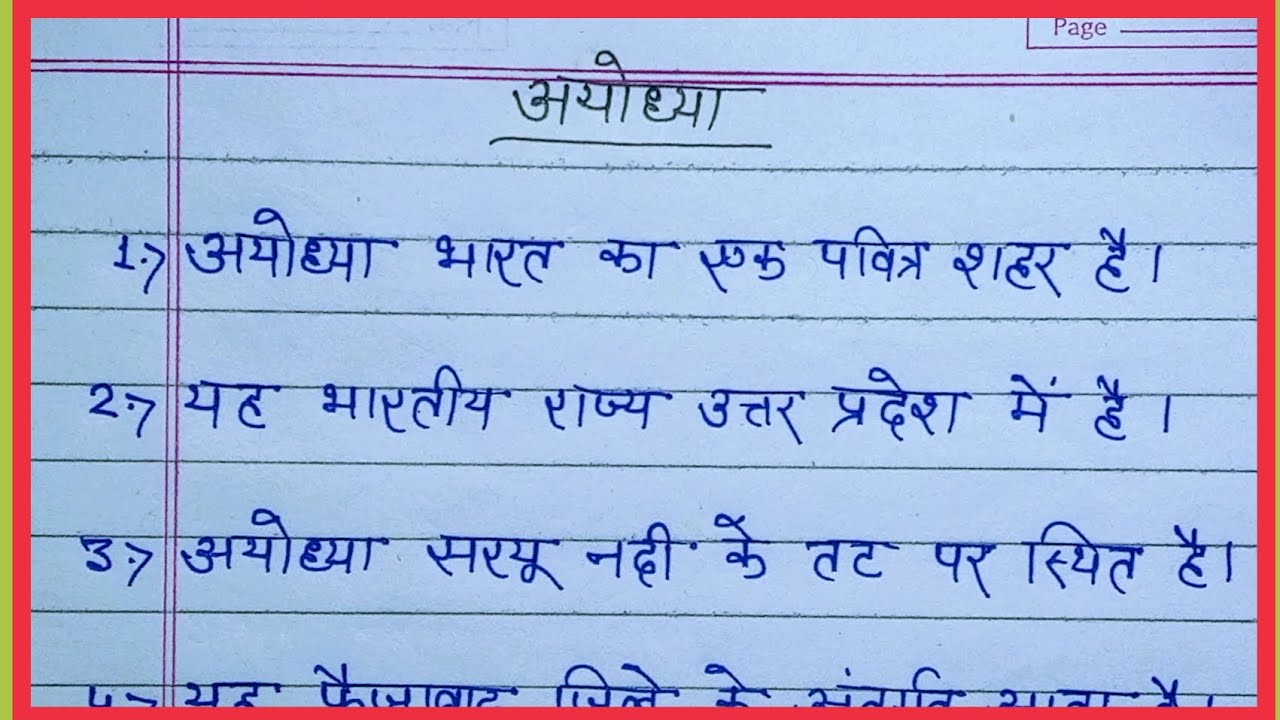 Page
अयोध्या
1.→ अयोध्या भारत का एक पवित्र शहर है।
2.→ यह भारतीय राज्य उत्तर प्रदेश में है।
3.→ अयोध्या सरयू नदी के तट पर स्थित है।
यह फैजाबाद जिले के अंतर्गत आता है।